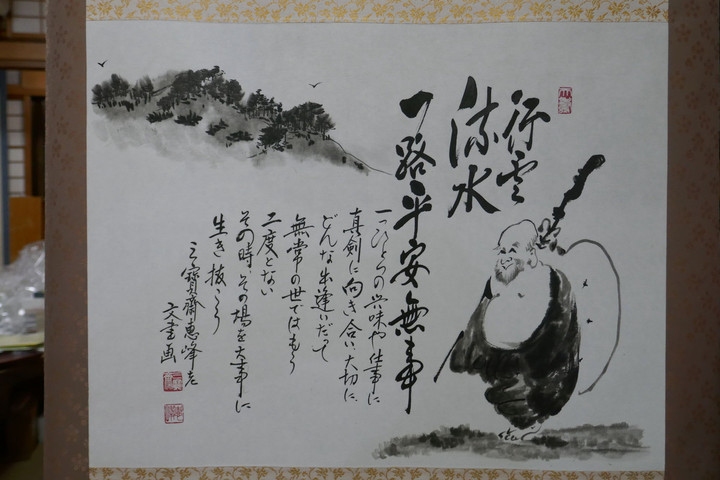 行雲
流水
一路平安無事
一つひとつの興味や仕事に
真剣に向き合い大切に
どんな出逢いだって
無常の世ではもう
二度とない
その時、その場を大事に
生き抜こう
三寶齋惠峰老
文書画